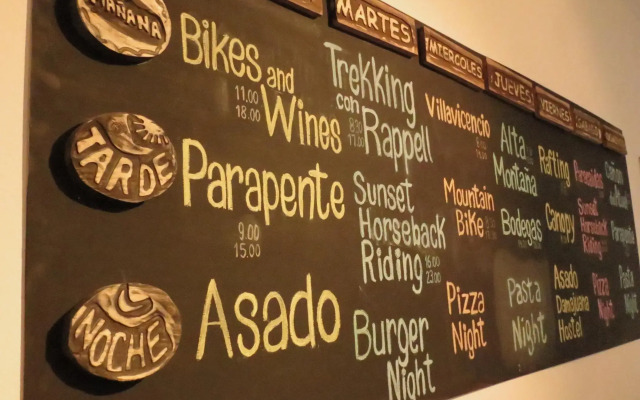 MARTES
MIERCOLES
JUEVES
VIERNES
MAÑANA
Bikes and
11.00
18.00
Wines
Trekking
con
Rappell
Villavicencio
Alta
Montaña
Rafting
TARDE
Parapente
9.00
15.00
Sunset
Horseback
Riding
16.00
23.00
Mountain
Bike
Bodegas
Canopy
Sunset
Horseback
Riding
Parapente
NOCHE
Asado
Burger
Night
Pizza
Night
Pasta
Night
Asado
Damajuana
Hostel
Pizza
Night
Pasta
Night